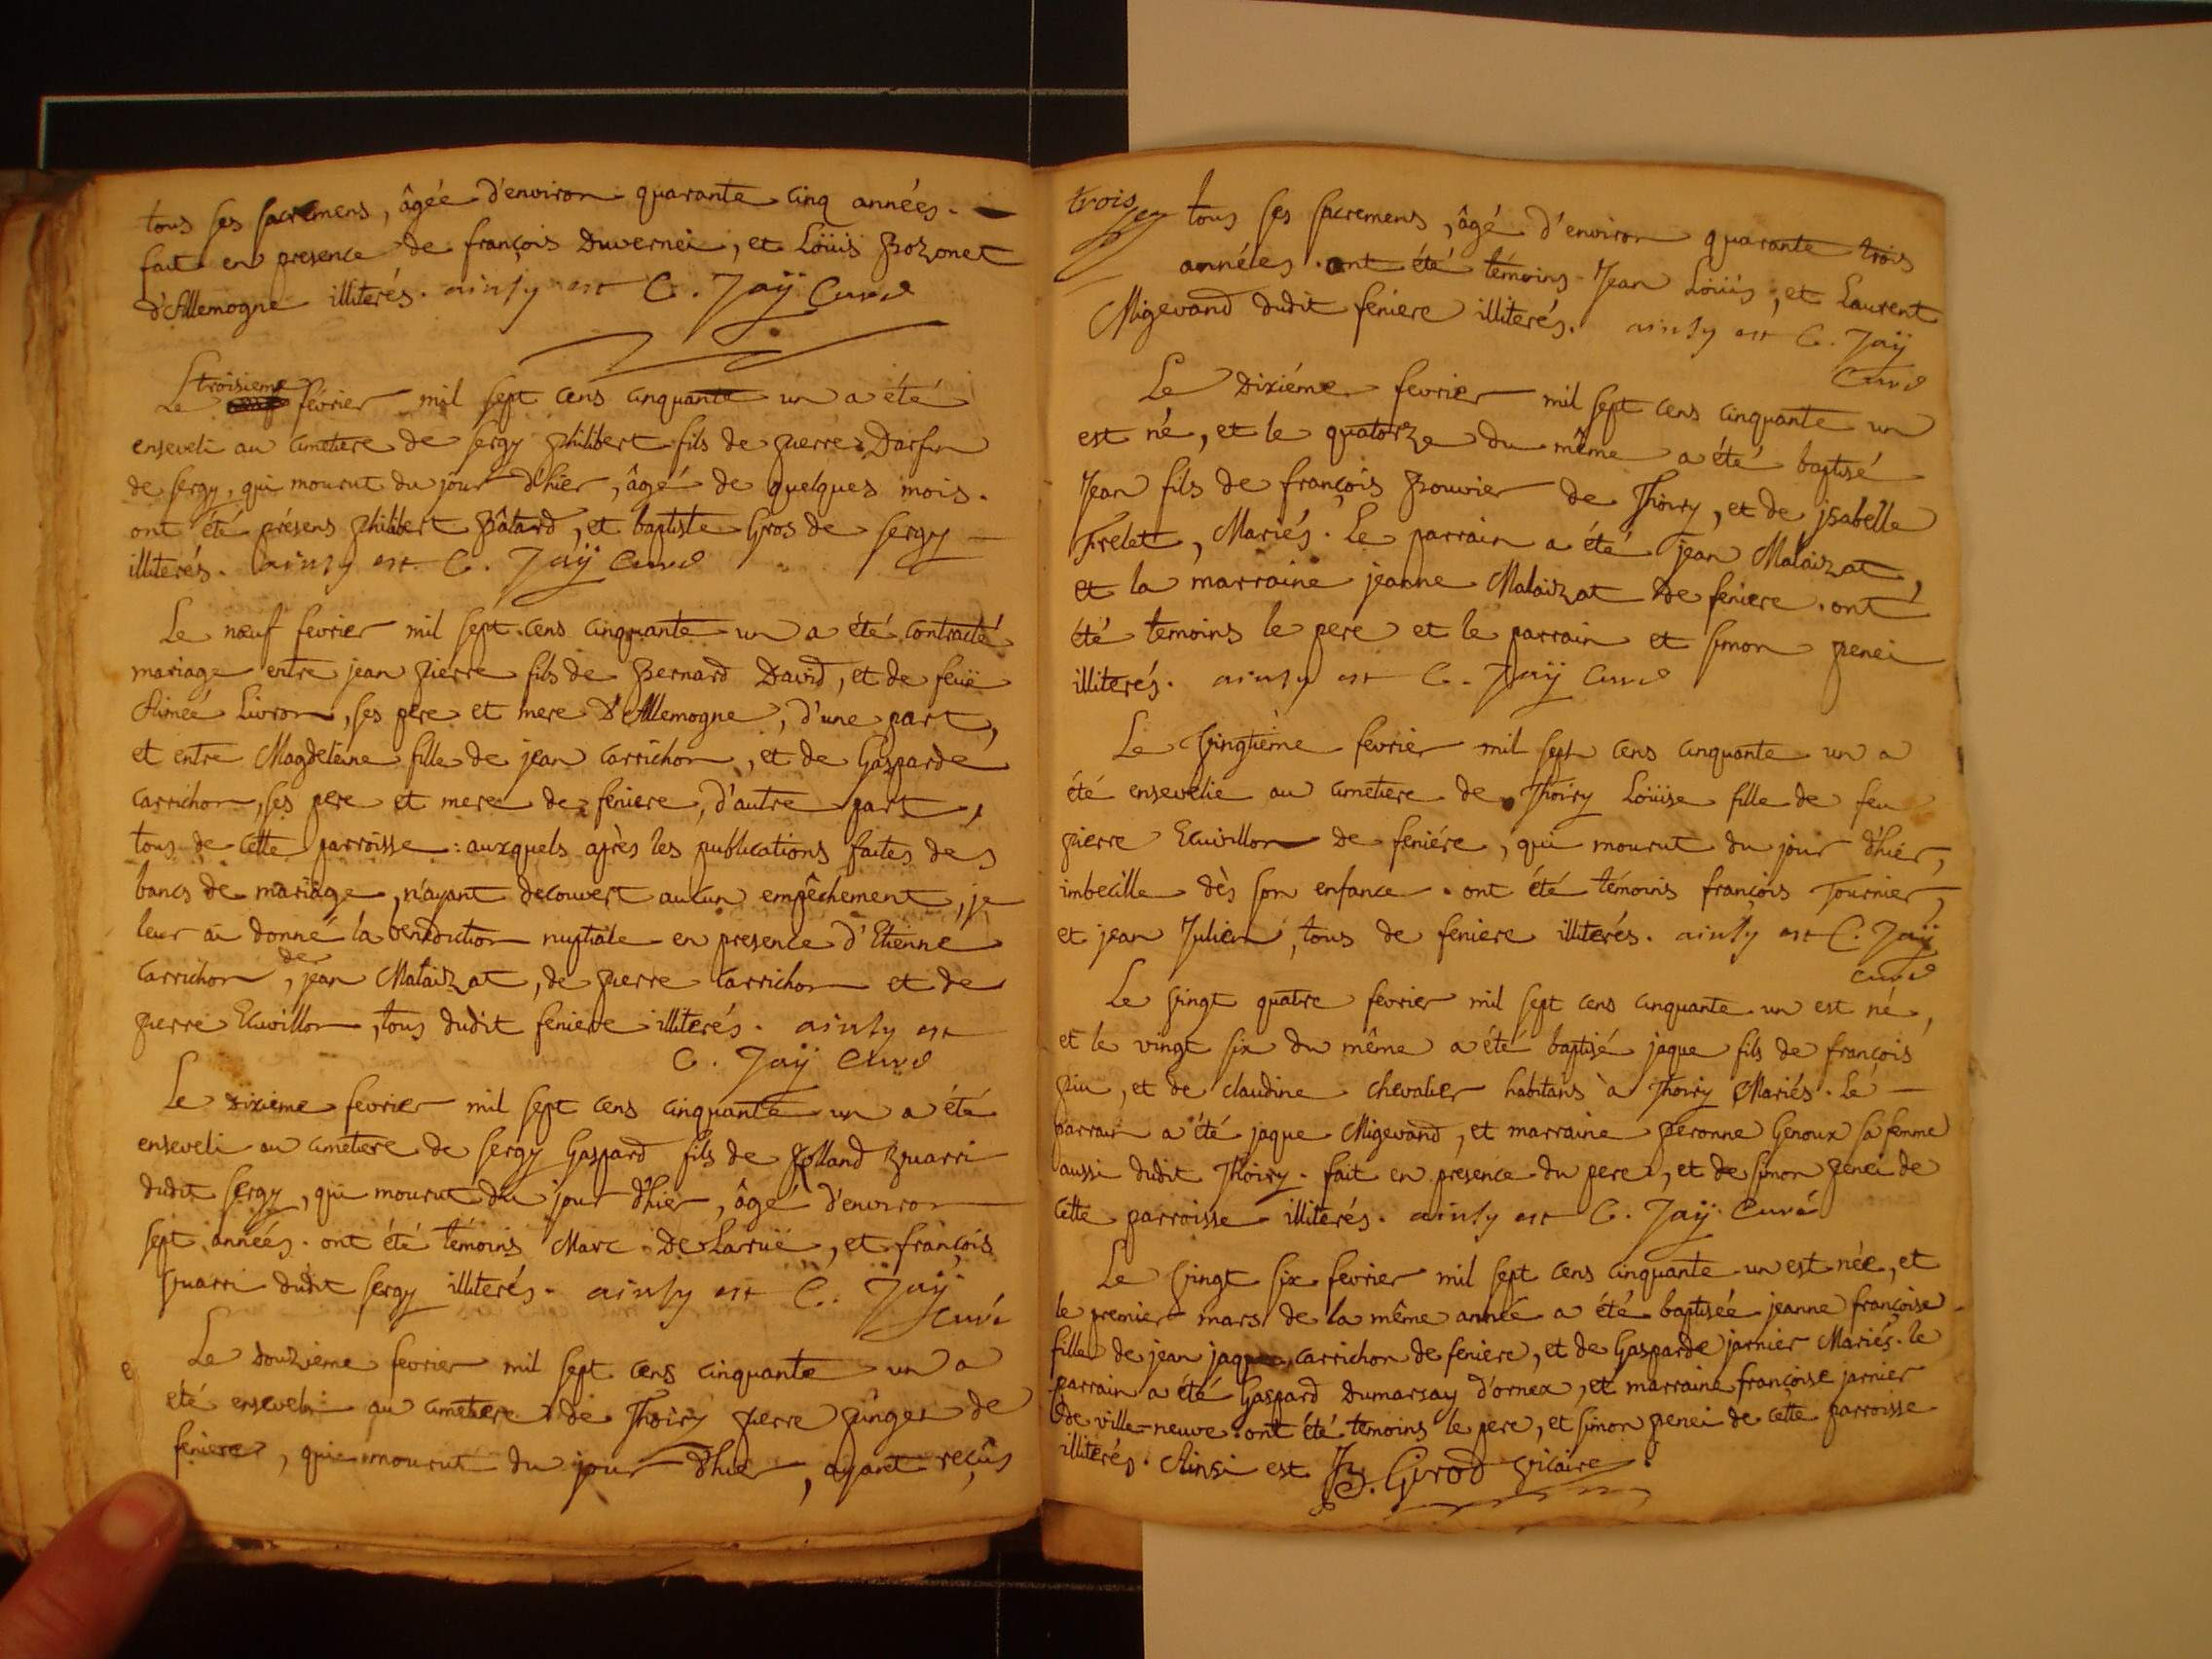 tous ses sacremens, âgée d'environ quarante cinq années.
fait en presence de françois Duvernei, et Loüis Bozonet
d'Allemogne illiterés. ainsy est C. Jaÿ Curé
Le troisieme fevrier mil sept cens cinquante un a été
enseveli au cimetiere de sergy philibert fils de pierre Darfin
de sergy, qui mourut du jour d'hier, âgé de quelques mois.
ont été présens philibert Bâtard, et baptiste Gros de sergy
illiterés. ainsy est C. Jaÿ Curé
Le nœuf fevrier mil sept cens cinquante un a été contracté
mariage entre jean pierre fils de Bernard David, et de feüe
Aimée Livron, ses pere et mere D'Allemogne, d'une part,
et entre Magdeleine fille de jean Carrichon, et de Gasparde
Carrichon, ses pere et mere de feniere, d'autre part,
tous de cette parroisse : auxquels après les publications faites des
bancs de mariage, n'ayant decouvert aucun empêchement, je
leur ai donné la benediction nuptiale en presence d'Etienne
Carrichon, de jean Malaizat, de pierre Carrichon et de
pierre Ecuvillon, tous dudit feniere illiterés. ainsy est
C. Jaÿ Curé
Le dixieme fevrier mil sept cens cinquante un a été
enseveli au cimetiere de sergy Gaspard fils de Rolland
dudit sergy, qui mourut du jour d'hier, âgé d'environ
sept années. ont été témoins Marc DeLarrüe, et françois
dudit sergy illiterés. ainsy est C. Jaÿ
Curé
Le douzieme fevrier mil sept cens cinquante un a
été enseveli au cimetiere de Thoiry pierre de
feniere, qui mourut du jour d'hier, ayant reçûs
trois
tous ses sacremens, âgé d'environ quarante trois
années. ont été témoins Jean Loüis, et Laurent
Migevand dudit feniere illiterés. ainsy est C. Jaÿ
Curé
Le Dixiéme fevrier mil sept cens cinquante un
est né, et le quatorze du même a été baptisé
Jean fils de françois Bouvier de Thoiry, et de jsabelle
Frelet, Mariés. Le parrain a été jean Malaizat,
et la marraine jeanne Malaizat de feniere. ont
été temoins le pere et le parrain et simon penei
illiterés. ainsy est C. Jaÿ Curé
Le Vingtième fevrier mil sept cens cinquante un a
été ensevelie au cimetiere de Thoiry Loüise fille de feu
pierre Ecuvillon de feniére, qui mourut du jour d'hier,
imbecille dès son enfance. ont été témoins françois Tournier,
et jean Julien, tous de feniere illiterés. ainsy est C. Jaÿ
curé
Le Vingt quatre fevrier mil sept cens cinquante un est né,
et le vingt six du même a été baptisé jaque fils de françois
et de claudine chevalier habitans à Thoiry Mariés. Le
parrain a été jaque Migevand, et marraine peronne Genoux sa femme
aussi dudit Thoiry. fait en presence du pere, et de simon penei de
cette parroisse illiterés. ainsy est C. Jaÿ Curé
Le Vingt six fevrier mil sept cens cinquante un est née, et
le premier mars de la même année a été baptisée jeanne françoise
fille de jean jaque carrichon de feniere, et de Gasparde jarnier Mariés. le
parrain a été Gaspard Dumarsay d'ornex, et marraine françoise jarnier
de ville-neuve. ont été temoins le pere, et simon penei de cette parroisse
illiterés. Ainsi est Girod Vicaire.